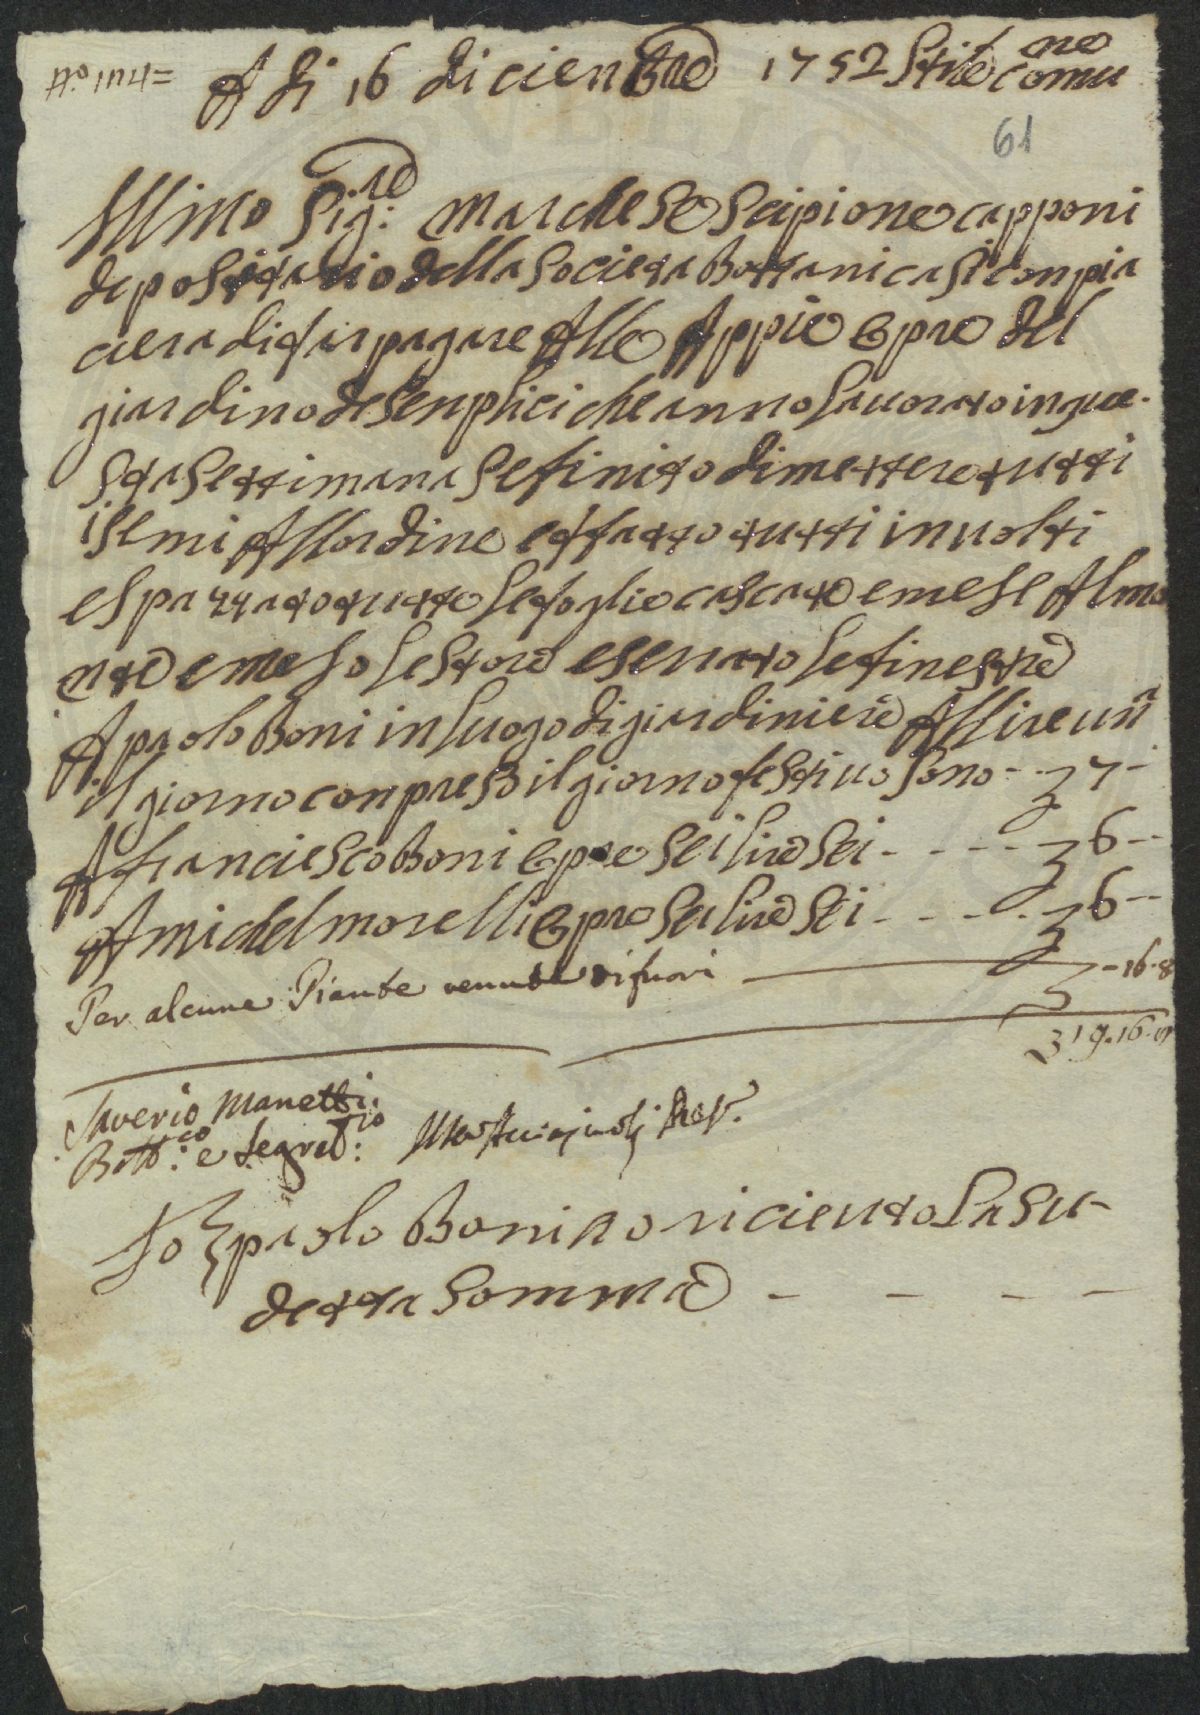 N.º 104=
A di 16 diciembre 1752 Stile comune
61
Illmo Sig.re Marchese Scipione capponi
depositario della Societa Bottanica Si conpia
ciera di far pagare Alle Appie Opre del
giardino de Senplici che anno lauorato in que-
Sta Settimana Se finito di mettere tutti
i Semi All ordine e fatto tutti inuolti
e Spazzato tutte le foglie cascate e mese Al mo
nte e meso le Store e Seruato le finestre
A paolo Boni in luogo di giardiniere A llire una
il giorno conpreso il giorno festiuo Sono - - £ 7 -
A franciesco Boni Opre Sei lire Sei - - - - £ 6 - -
A Michel morelli Opre Sei lire Sei - - - - - £ 6 - -
Per alcune Piante venute di fuori £ - 16 - 8
£ 19. 16. 8
Saverio Manetti
Bott.co e Segret.rio
Io paolo Boni o ricieuto La Su-
detta Somma - - - -